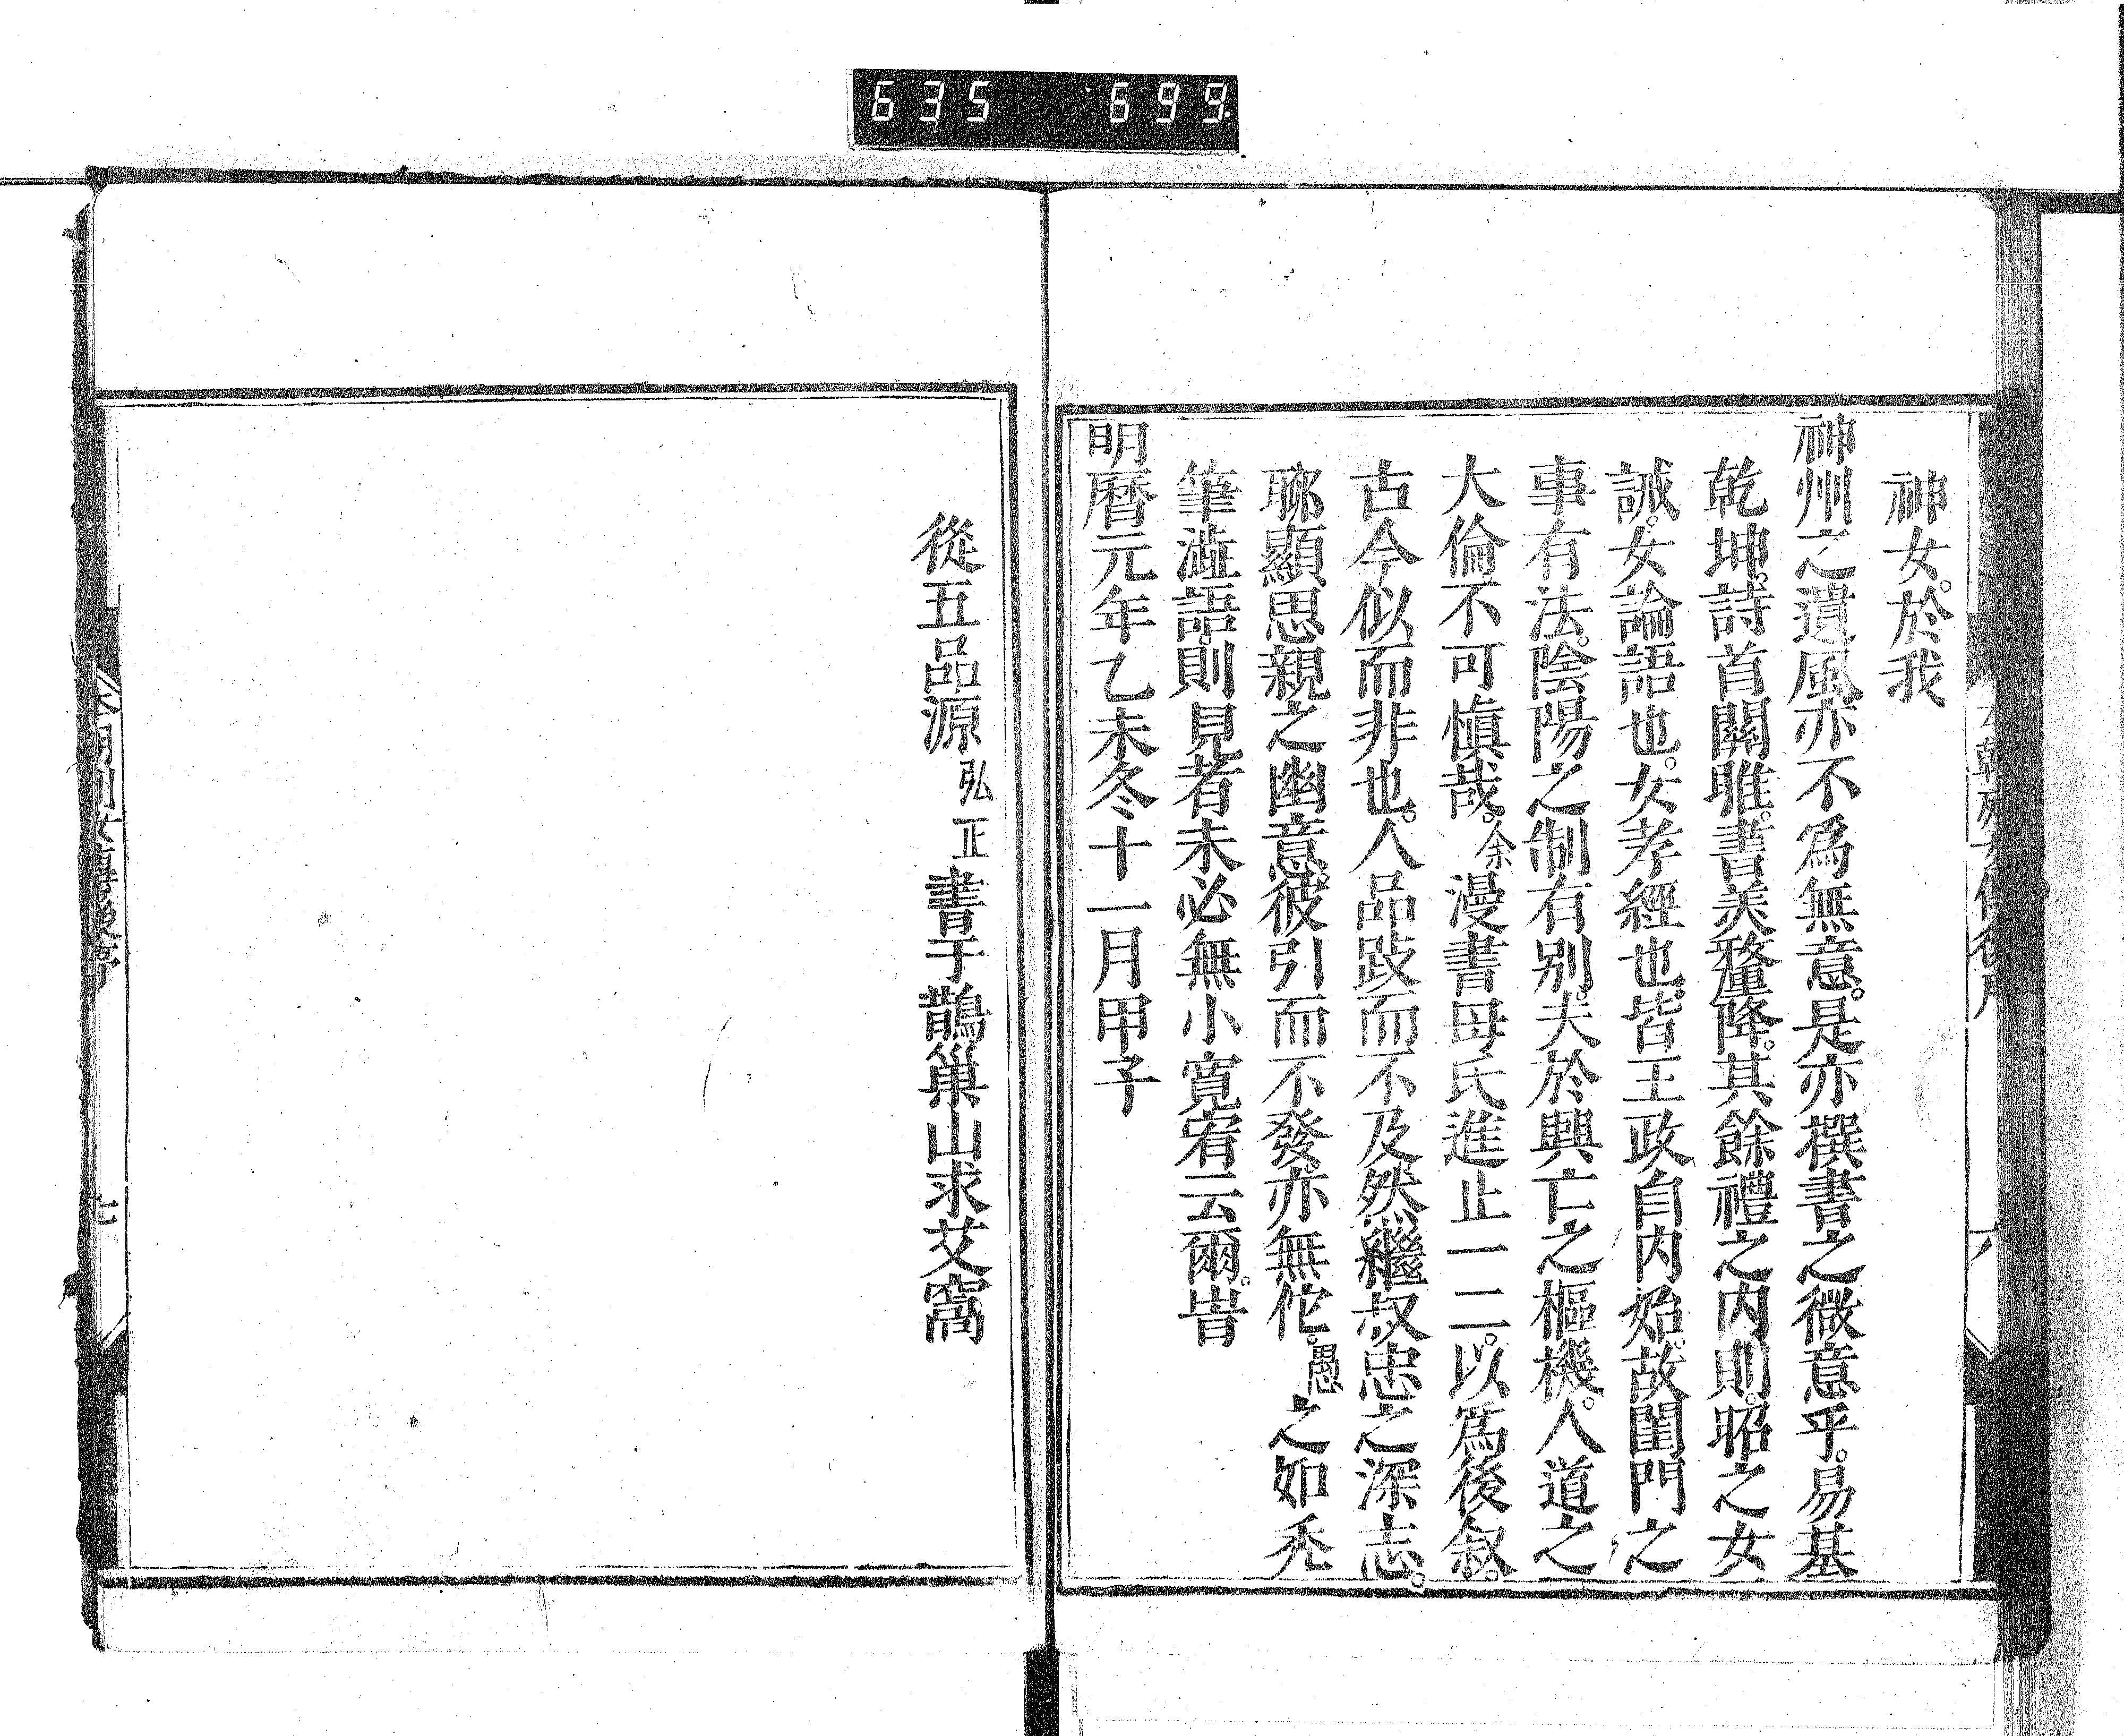 635 699
神女。於我
神州之遺風亦不爲無意。是亦撰書之微意乎。易基
乾坤。詩首關雎。書美釐降。其餘禮之内則。昭之女
誡。女論語也。女孝經也。皆王政自内始。故閨門之
事有法。陰陽之制有别。夫於興亡之樞機。人道之
大倫不可愼哉。余漫書母氏進止一二。以爲後叙。
古今似而非也。人品跂而不及然繼叔忠之深志。
聊顯思親之幽意。彼引而不發。亦無佗。愚之如禿
筆澁語。則見者未必無小寛宥云爾。旹
明曆元年乙未冬十一月甲子
從五品源弘正書于鵲巢山求艾窩
七